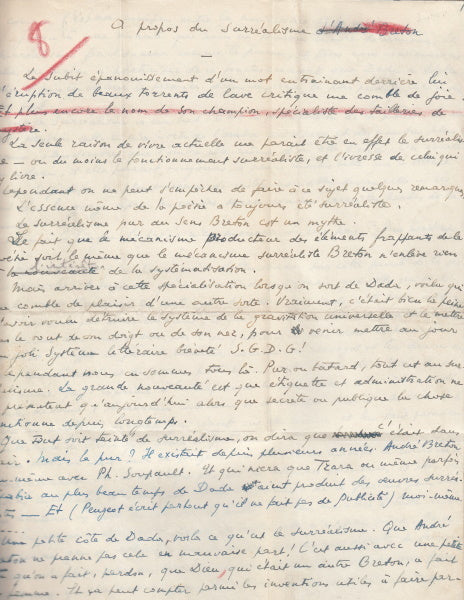 8
A propos du surréalisme d'André Breton
Le subit épanouissement d'un mot entraînant derrière lui
l'éruption de beaux torrents de lave critique me comble de joie.
Et plus encore le nom de son champion, spécialiste des tailleries de
mystère.
La seule raison de vivre actuelle me parait être en effet le surréalis
me — ou du moins le fonctionnement surréaliste, et l'ivresse de celui qui
s'y livre.
Cependant on ne peut s'empêcher de faire à ce sujet quelques remarques
L'essence même de la poésie a toujours été surréaliste.
Le surréalisme pur au sens Breton est un mythe.
Le fait que le mécanisme producteur des éléments frappants de la
poésie soit le même que le mécanisme surréaliste Breton n'enlève rien
à la nouveauté de la systématisation.
Mais arriver à cette spécialisation lorsqu'on sort de Dada, voilà qui
me comble de plaisirs d'une autre sorte. Vraiment, c'était bien la peine
d'avoir voulu détruire le système de la gravitation universelle et le mettre
sur le bout de son doigt ou de son nez, pour venir mettre au jour
un joli système littéraire breveté S.G.D.G!
Cependant nous en sommes tous là. Pur ou batard, tout est au sur-
réalisme. La grande nouveauté est que étiquette et administration ne
se présentent qu'aujourd'hui alors que secrète ou publique la chose
fonctionne depuis longtemps.
Que tout soit teinté de surréalisme, on dira que c'était dans
l'air. Mais le pur? Il existait depuis plusieurs années. André Breton
lui-même avec Ph. Soupault. Et qui niera que Tzara ou même parfois
Picabia au plus beau temps de Dada aient produit des œuvres surréa-
listes — Et (Peugeot écrit partout qu'il ne fait pas de publicité) moi-même
Un petit côté de Dada, voilà ce qu'est le surréalisme. Que André
Breton ne prenne pas cela en mauvaise part! C'est aussi avec une petite
qu'on a fait, pardon, que Dieu, qui était un autre Breton, a fait
Il va peut compter parmi les inventions utiles à faire par-